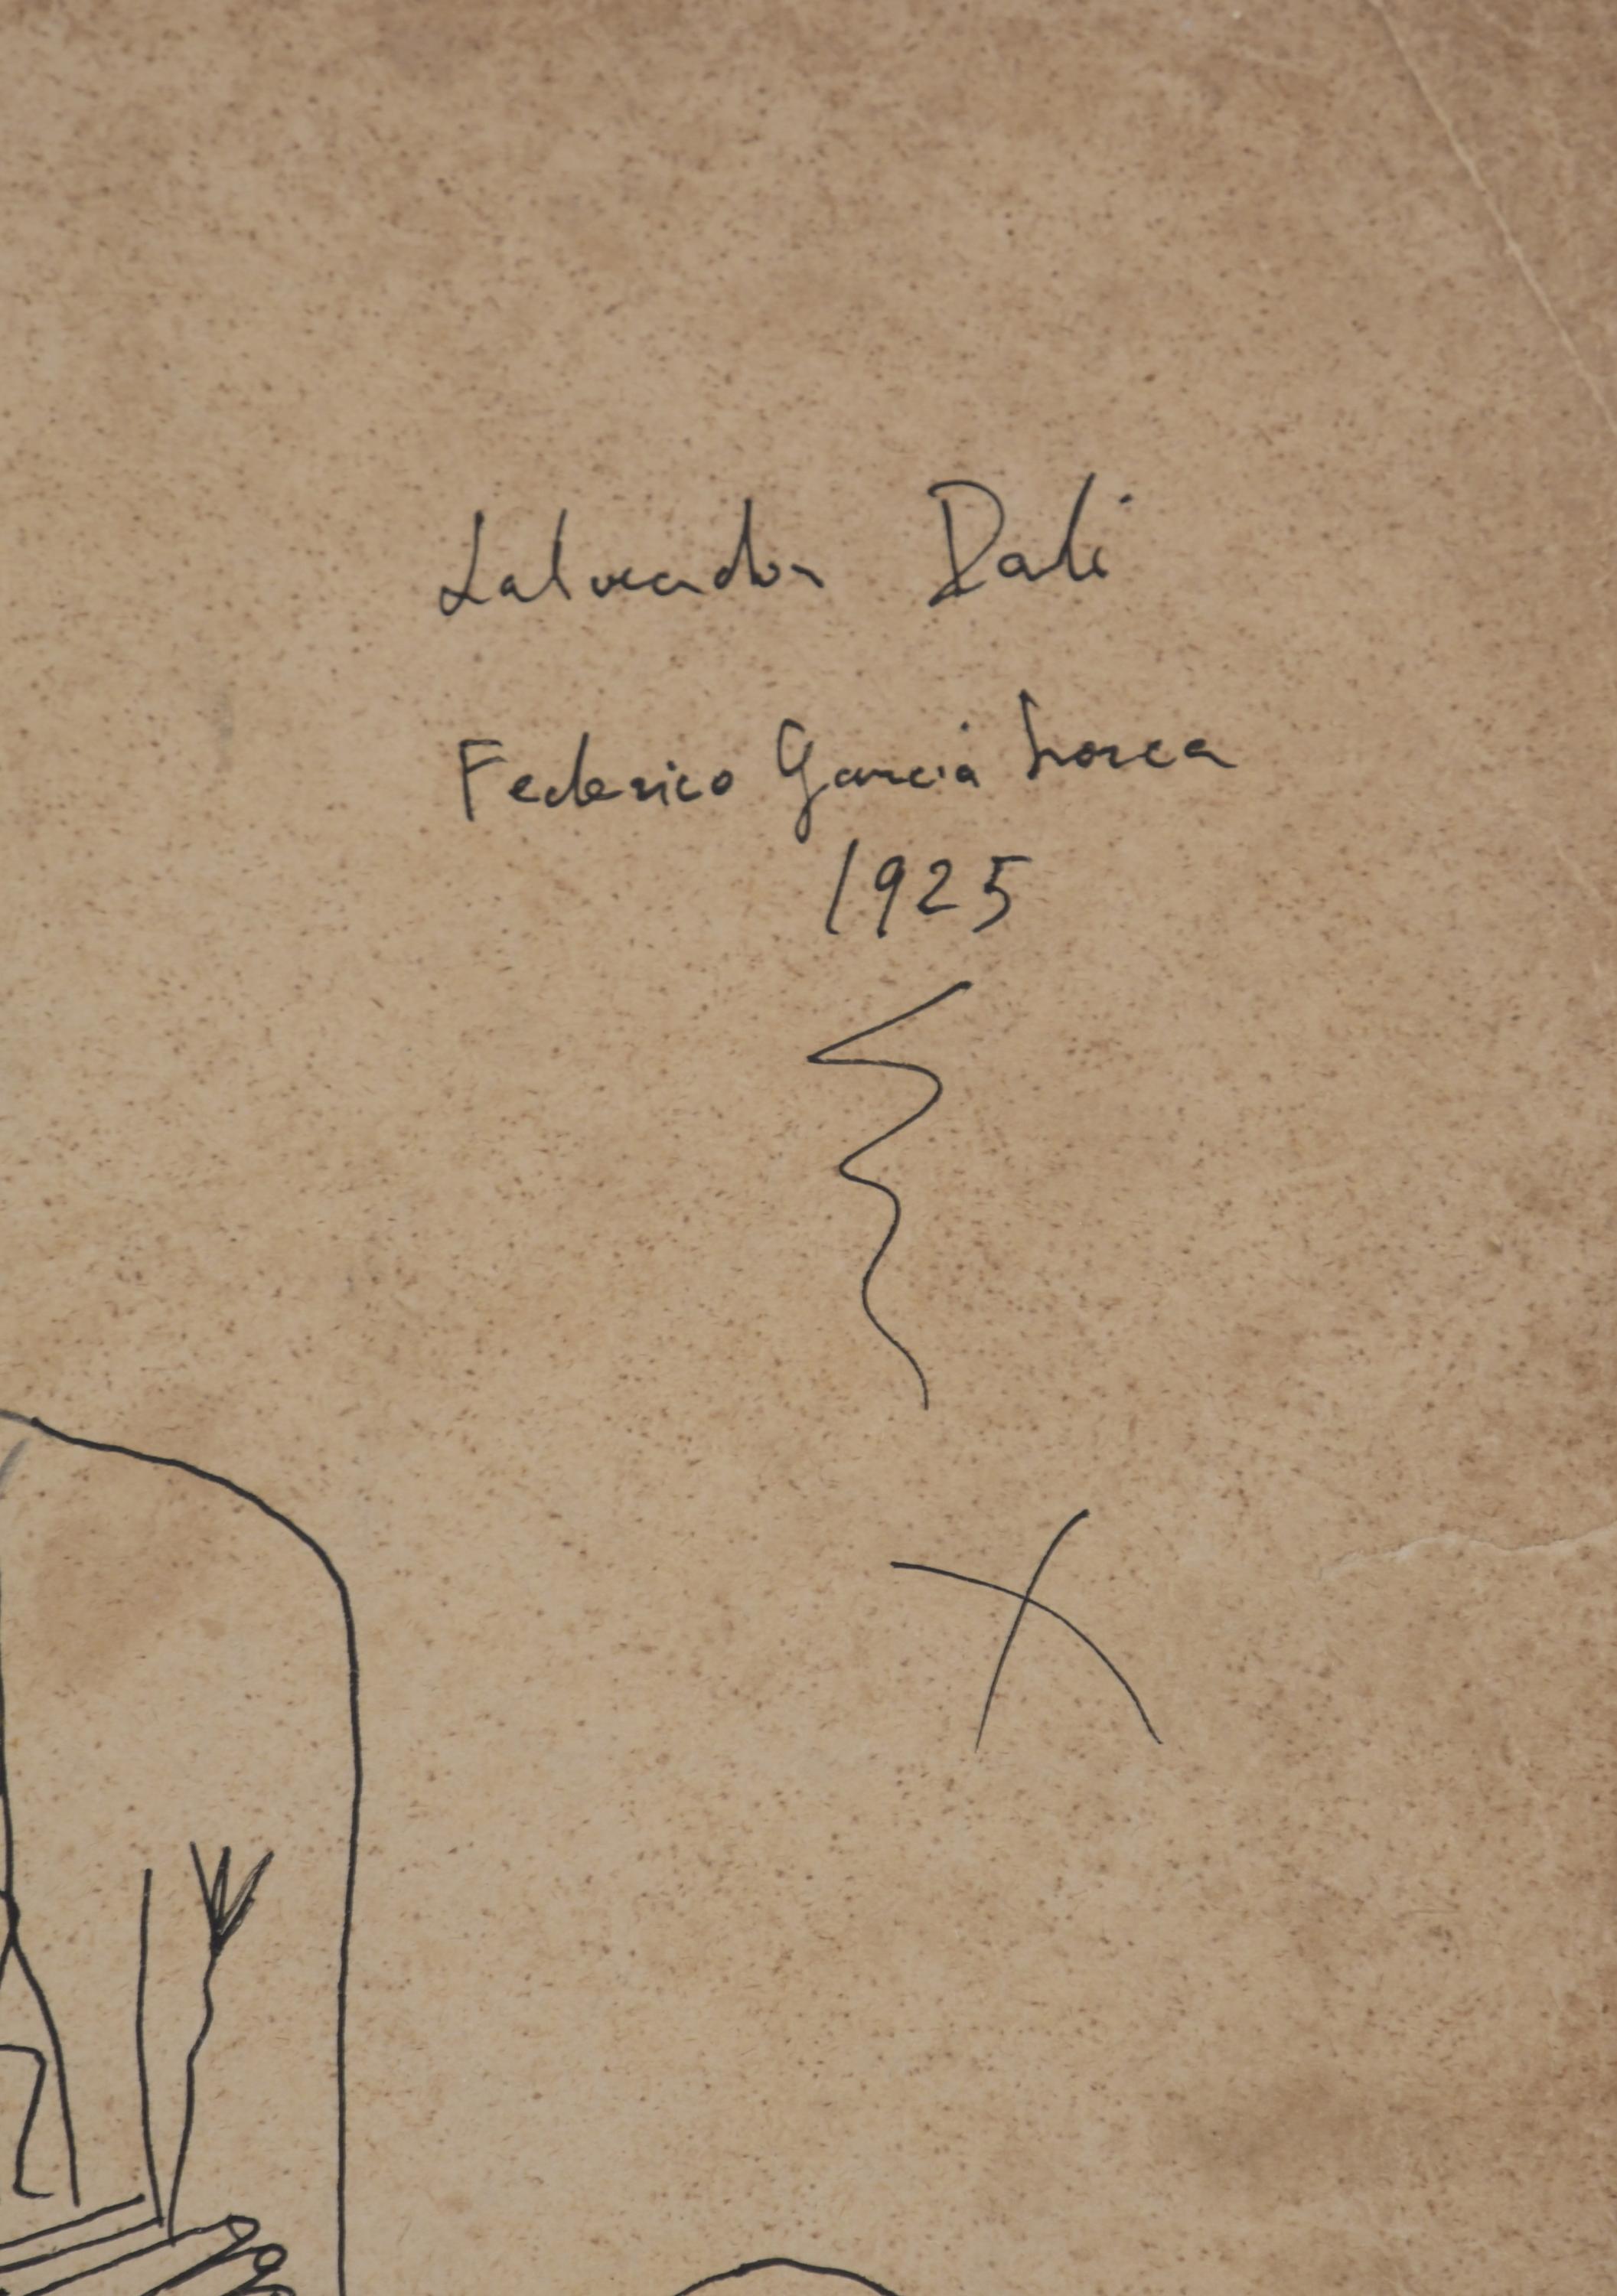 Salvador Dalí
Federico García Lorca
1925